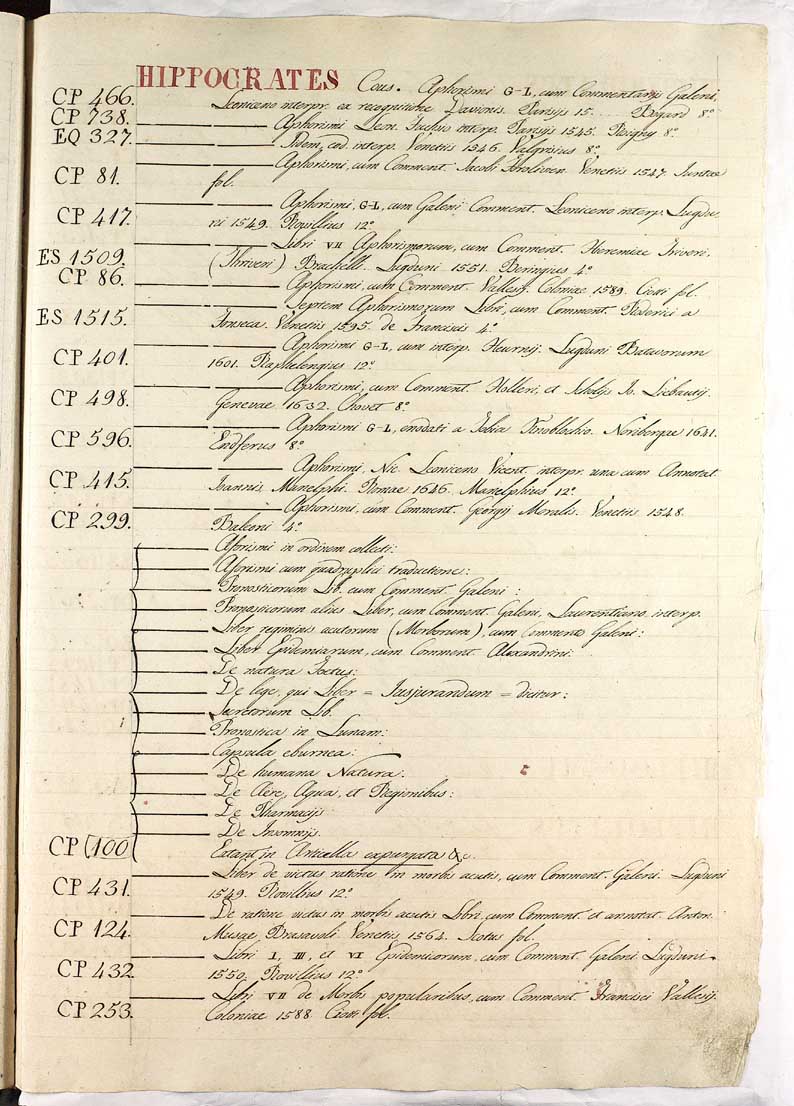 HIPPOCRATES Cous. Aphorismi G-L, cum Commentarijs Galeni,
CP 466. Leoniceno interpr. ex recognitione Parisijs 15.... Bogard 8°
CP 738. Aphorismi Leon. Fuchso interp. Parisijs 1545. Roigny 8°
EQ 327. Idem, eod. interp. Venetiis 1546. Valgrisius 8°
Aphorismi, cum Comment. Jacobi Venetiis 1547. Juntae
CP 81. fol.
Aphorismi, G-L, cum Galeni Comment. Leoniceno interp. Lugdu
CP 417. ni 1549. Rovillius 12°
Libri VII Aphorismorum, cum Comment. Hieremiae Triveri.
ES 1509. (Thriveri) Brachelli. Lugduni 1551. Beringius 4°
CP 86. Aphorismi, cum Comment. Vallesij. Coloniae 1589. Ciotti fol.
Septem Aphorismorum Libri, cum Comment. Roderici a
ES 1515. Fonseca. Venetiis 1595. de Franciscis 4°
Aphorismi G-L, cum interp. Heurnij. Lugduni Batavorum
CP 401. 1601. Raphelengius 12°
Aphorismi, cum Comment. Holleri, et Scholijs Io. Liebautij.
CP 498. Genevae 1632. Chovet 8°
Aphorismi G-L, enodati a Tobia Knoblochio. Noribergae 1641.
CP 596. Endterus 8°
Aphorismi, Nic. Leoniceno Vicent. interpr. una cum Annotat.
CP 415. Ioannis Manelphi. Romae 1646. Manelphius 12°
Aphorismi, cum Comment. Georgij Moralis. Venetiis 1548.
CP 299. Balconi 4°
Aforismi in ordinem collecti:
Aforismi cum quadruplici traductione:
Pronosticorum Lib. cum Comment. Galeni:
alius Liber, cum Comment. Galeni, Laurentiano interp.
Liber regiminis acutorum (Morborum), cum Commento Galeni:
Liber Epidemiarum, cum Comment. Alexandrini:
De natura Foetus:
De lege, qui Liber = Jusjurandum = dicitur:
Secretorum Lib.
Pronostica in Lunam:
Capsula eburnea:
De humana Natura.
De Aere, Aqua, et Regionibus:
De Pharmacijs
De Insomnijs.
CP (100 Extant in Articella expurgata &c.
Liber de victus ratione in morbis acutis, cum Comment. Galeni. Lugduni
CP 431. 1549. Rovillius 12°
De ratione victus in morbis acutis Libri, cum Comment. et annotat. Anton.
CP 124. Musae Brasavoli. Venetiis 1564. Scotus fol.
Libri I, III, et VI Epidemicorum, cum Comment. Galeni Lugduni
CP 432 1550. Rovillius 12°
Libri VII de Morbis popularibus, cum Comment. Francisci Vallesij.
CP 253. Coloniae 1588. Ciotti fol.